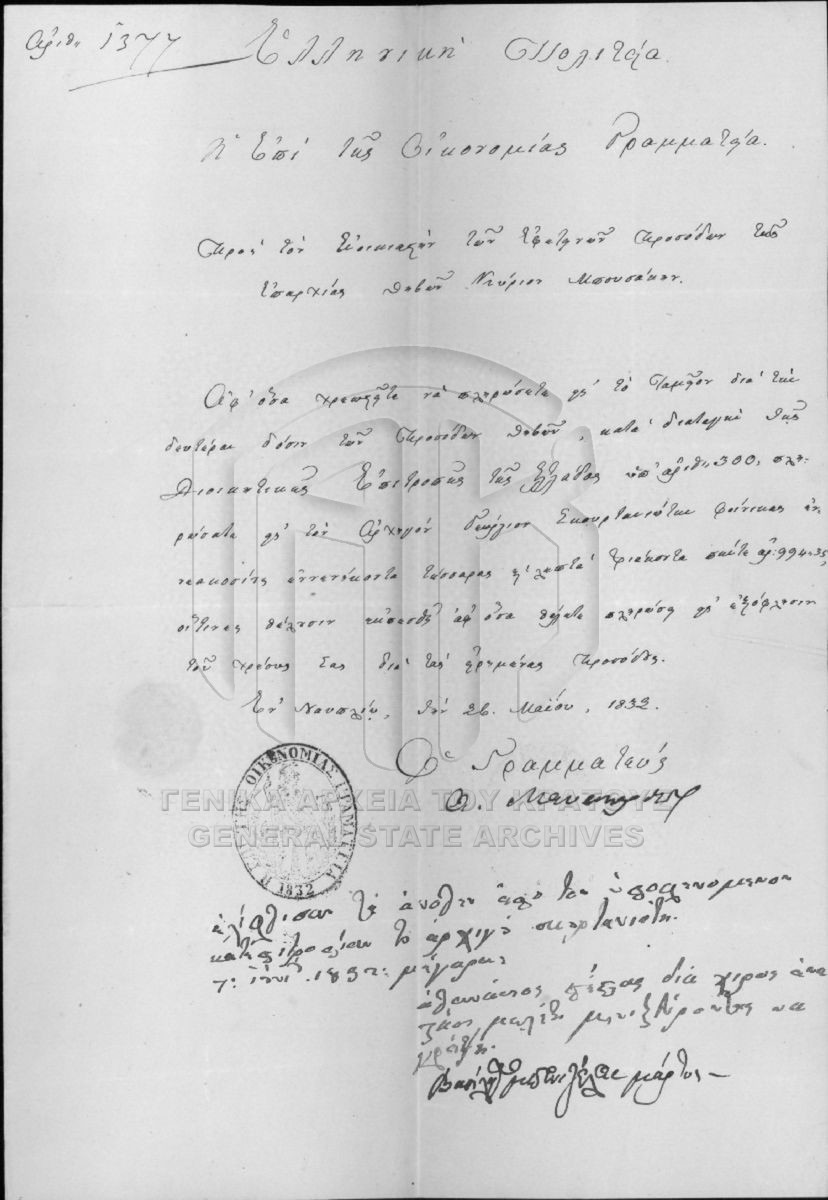 Αριθ. 1377
Ἑλληνικὴ Πολιτεία.
Ἡ Ἐπὶ τῆς Οἰκονομίας Γραμματεία.
Πρὸς τὸν Ἐνοικιαστὴν τῶν Ἐθνικῶν Προσόδων τῆς
Ἐπαρχίας Θηβῶν Κύριον Μπουσάκην.
Ἀφ' ὅσα χρεωστεῖτε νὰ πληρώσετε εἰς τὸ Ταμεῖον διὰ τὴν
δευτέραν δόσιν τῶν Προσόδων Θηβῶν, κατὰ διαταγὴν τῆς
Διοικητικῆς Ἐπιτροπῆς τῆς Ἑλλάδος ὑπ' ἀριθ. 300, πλη-
ρώσατε εἰς τὸν Ἀρχηγὸν Γεώργιον Σκουρτανιώτην Φοίνικας ἐν-
νεακοσίους ἐννενήκοντα τέσσαρας καὶ λεπτὰ τριάκοντα πέντε ἀρ: 994:35,
οἵτινες θέλουσιν ἐκπεσθῆ ἀφ' ὅσα θέλετε πληρώσῃ εἰς ἐξόφλησιν
τοῦ χρέους σας διὰ τὰς εἰρημένας προσόδους.
Ἐν Ναυπλίῳ, τὴν 26 Μαΐου, 1832.
Ὁ Γραμματεὺς
Η ΕΠΙ ΤΗΣ ΟΙΚΟΝΟΜΙΑΣ ΓΡΑΜΜΑΤΕΙΑ
1832
ΓΕΝΙΚΑ ΑΡΧΕΙΑ ΤΟΥ ΚΡΑΤΟΥΣ
GENERAL STATE ARCHIVES
τὰ ἄνοθεν ἀπὸ τὸν ὑποφενόμενον
τοῦ ἀρχιγοῦ σκουρτανιότη.
7: 1832: μέγαρα:
ἀθανάσιος διὰ χιρὸς
μὴ ἠξεύροντας να
γράψη.
μάρτυς